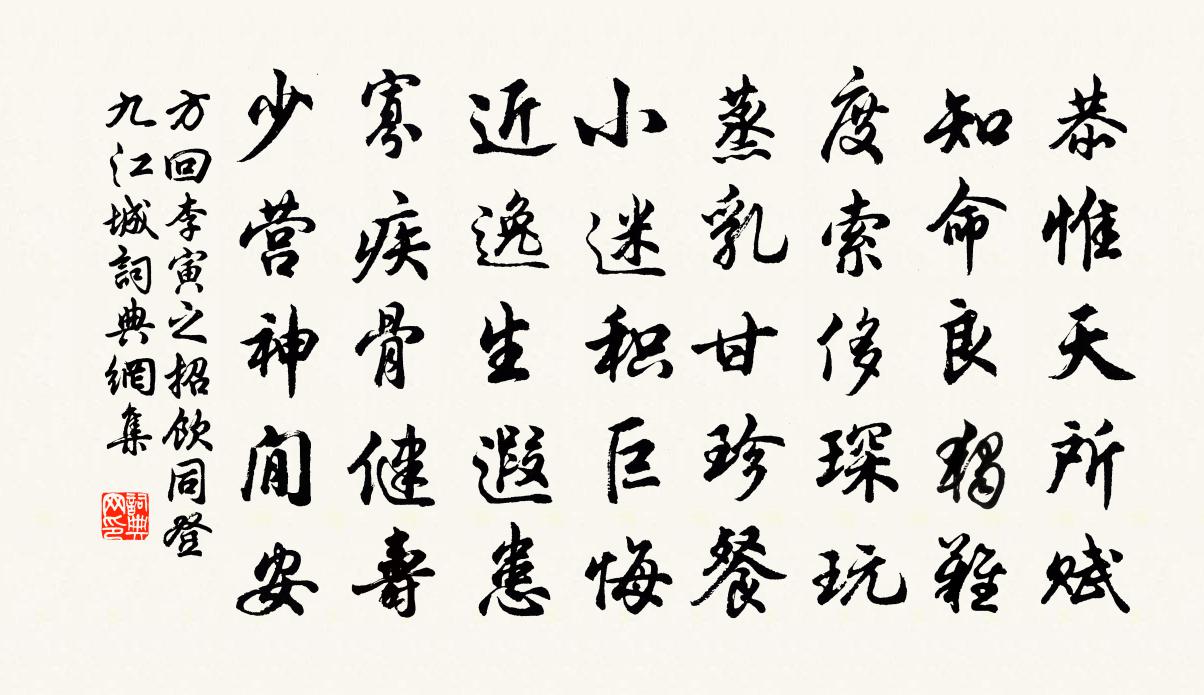 恭惟天所赋
知命良獨難
度索侈琛玩
蒸乳甘珍餐
小迷积巨悔
近逸生遐患
寡疾骨健壽
少营神閒安
方回李寅之招飲同登
九江城詞典網集
詞典网印